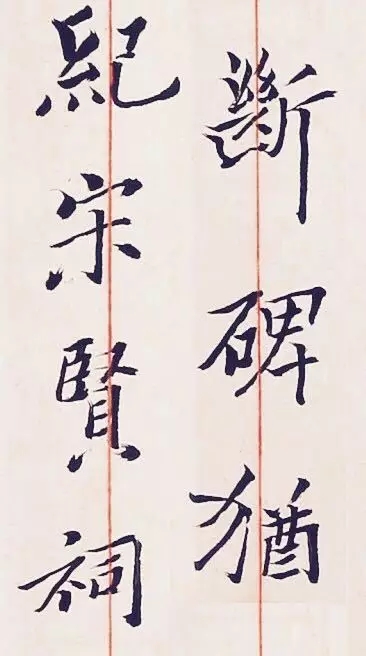 斷碑猶
紀宋賢祠